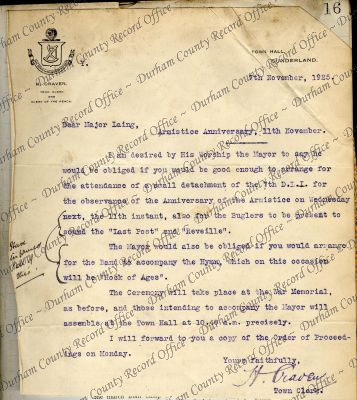 16
TOWN HALL,
SUNDERLAND.
H. CRAVEN,
TOWN CLERK
AND
CLERK OF THE PEACE.
7th November, 1925.
Dear Major Laing,
Armistice Anniversary, 11th November.
I am desired by His Worship the Mayor to say he
would be obliged if you would be good enough to arrange for
the attendance of a small detachment of the 7th D.L.I. for
the observance of the Anniversary of the Armistice on Wednesday
next, the 11th instant, also for the Buglers to be present to
sound the "Last Post" and "Reveille".
The Mayor would also be obliged if you would arrange
for the Band to accompany the Hymn, which on this occasion
will be "Rock of Ages".
The Ceremony will take place at the War Memorial,
as before, and those intending to accompany the Mayor will
assemble at the Town Hall at 10. a.m. precisely.
I will forward to you a copy of the Order of Proceed-
ings on Monday.
Yours faithfully,
H. Craven
Town Clerk.
~ Durham County Record Office ~ Durham County Record Office ~